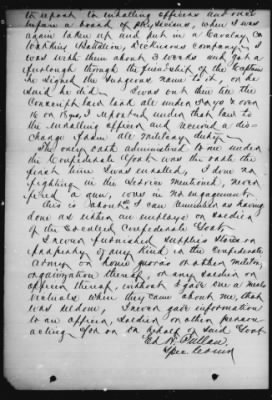 to report to enrolling officers and once
before a board of physicians, when I was
again taken up and put in a Cavalry Co
Watkins Battalion, company. I
was with them about 3 weeks and got a
furlough through the friendship of the
he signed the Surgeons name to it, or he
said he did. I was out then till the
Conscript law took all under 50 yrs & over
16 or 18 yrs, I reported under that law to
the enrolling officer and secured a dis-
charge from all Military duty.
The only oath administered to me under
the Confederate Govt was the oath the
first time I was enrolled, I done no
fighting in the service mentioned, never
fired a gun, was in no engagement
this is about all I can remember as having
done as either an employe or soldier
of the Confederate Govt.
I never furnished supplies stores or
property of any kind to the Confederate
army or home guards or other military
organization thereof, or any soldier or
officer thereof, without I gave one a meals
victuals when they came about me, that
was seldom, I never gave information
to an officer, soldier or other person
acting for or on behalf of said Govt
Ed W.
Spec Comr